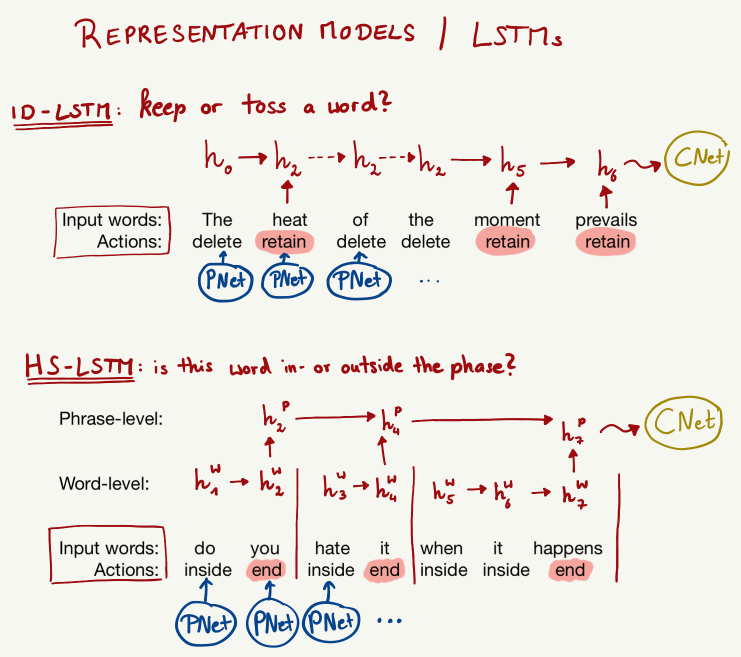 REPRESENTATION MODELS / LSTMs
ID-LSTM: keep or toss a word?
h₀ → h₂ ⇢ h₂ ⇢ h₂ → h₅ → h₆ → CNet
Input words: The heat of the moment prevails
Actions: delete retain delete delete retain retain
PNet PNet PNet ...
HS-LSTM: is this word in- or outside the phase?
Phrase-level: h₂ᵖ → h₄ᵖ → h₇ᵖ → CNet
Word-level: h₁ᵂ → h₂ᵂ h₃ᵂ → h₄ᵂ h₅ᵂ → h₆ᵂ → h₇ᵂ
Input words: do you hate it when it happens
Actions: inside end inside end inside inside end
PNet PNet PNet ...